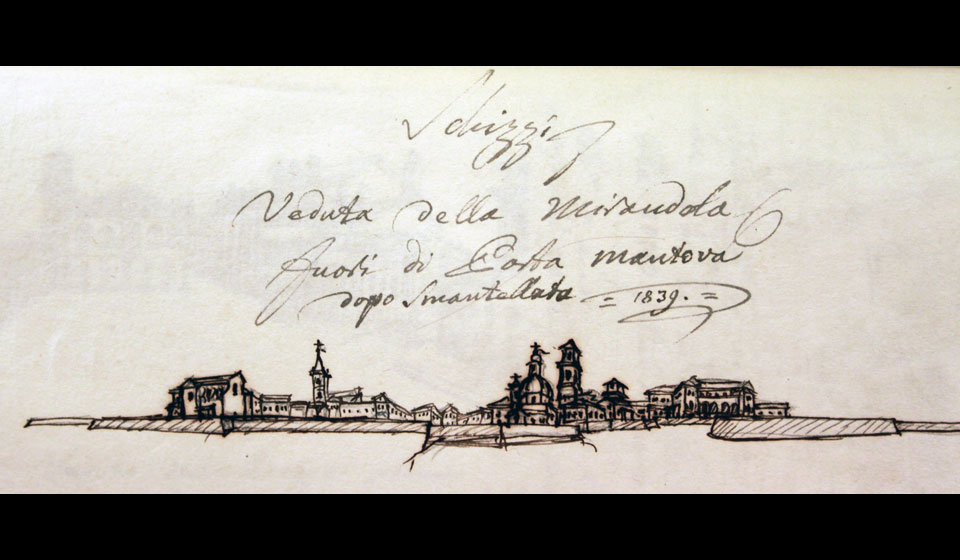 Schizzi
Veduta della Mirandola
fuori di Porta Mantova
dopo Smantellata = 1839. =